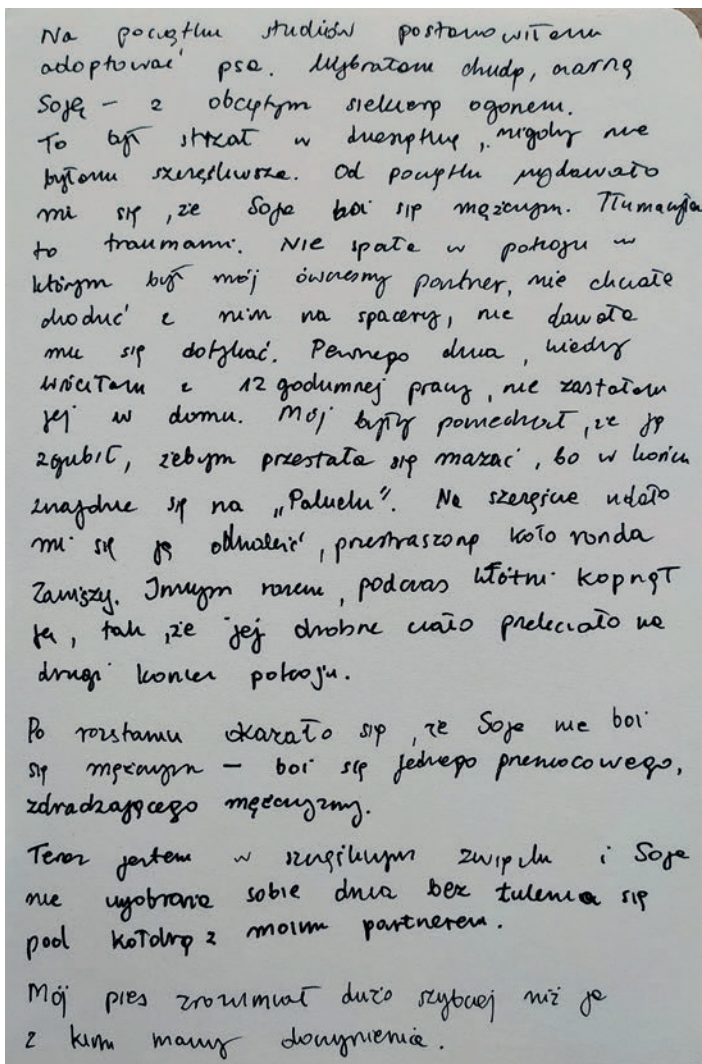 Na początku studiów postanowiłam
adoptować psa. Wybrałam chudą, czarną
Soję – z obciętym siekierą ogonem.
To był strzał w dziesiątkę, nigdy nie
byłam szczęśliwsza. Od początku wydawało
mi się, że Soja boi się mężczyzn. Tłumaczyłam
to traumami. Nie spała w pokoju w
którym był mój ówczesny partner, nie chciała
chodzić z nim na spacery, nie dawała
mu się dotykać. Pewnego dnia, kiedy
wróciłam z 12 godzinnej pracy, nie zastałam
jej w domu. Mój były powiedział, że ją
zgubił, żebym przestała się mazać, bo w końcu
znajdzie się na „Paluchu". Na szczęście udało
mi się ją odnaleźć, przestraszoną koło ronda
Zawiszy. Innym razem, podczas kłótni kopnął
ją, tak, że jej drobne ciało przeleciało na
drugi koniec pokoju.
Po rozstaniu okazało się, że Soja nie boi
się mężczyzn – boi się jednego przemocowego,
zdradzającego mężczyzny.
Teraz jestem w szczęśliwym związku i Soja
nie wyobraża sobie dnia bez tulenia się
pod kołdrą z moim partnerem.
Mój pies zrozumiał dużo szybciej niż ja
z kim mamy do czynienia.